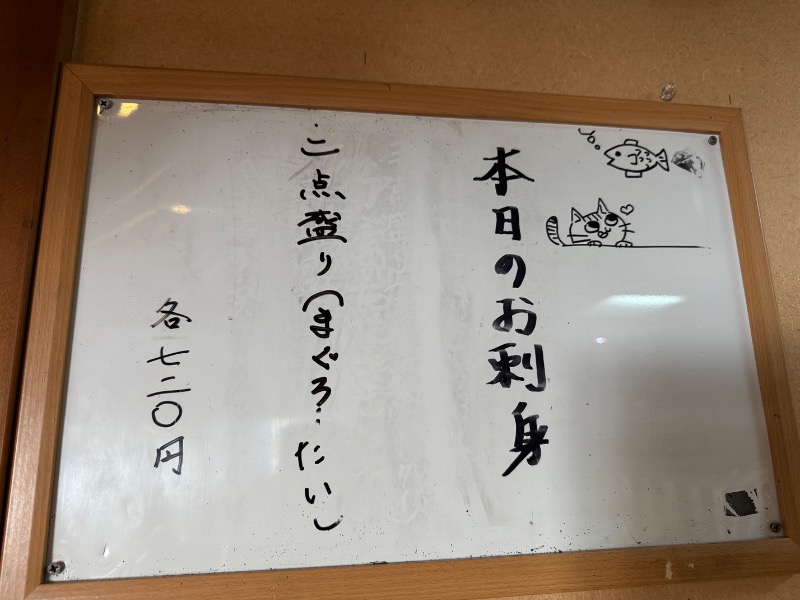 本日のお刺身
二点盛り(まぐろ・たい)
各七二〇円